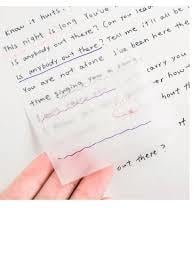 Know it hurts
This night is long You've
is anybody out there? Can you lean
is anybody out there? Tell me it'll all be
You are not alone I've been here the
time singing you a song
carry you
er how
the
rt
out there?